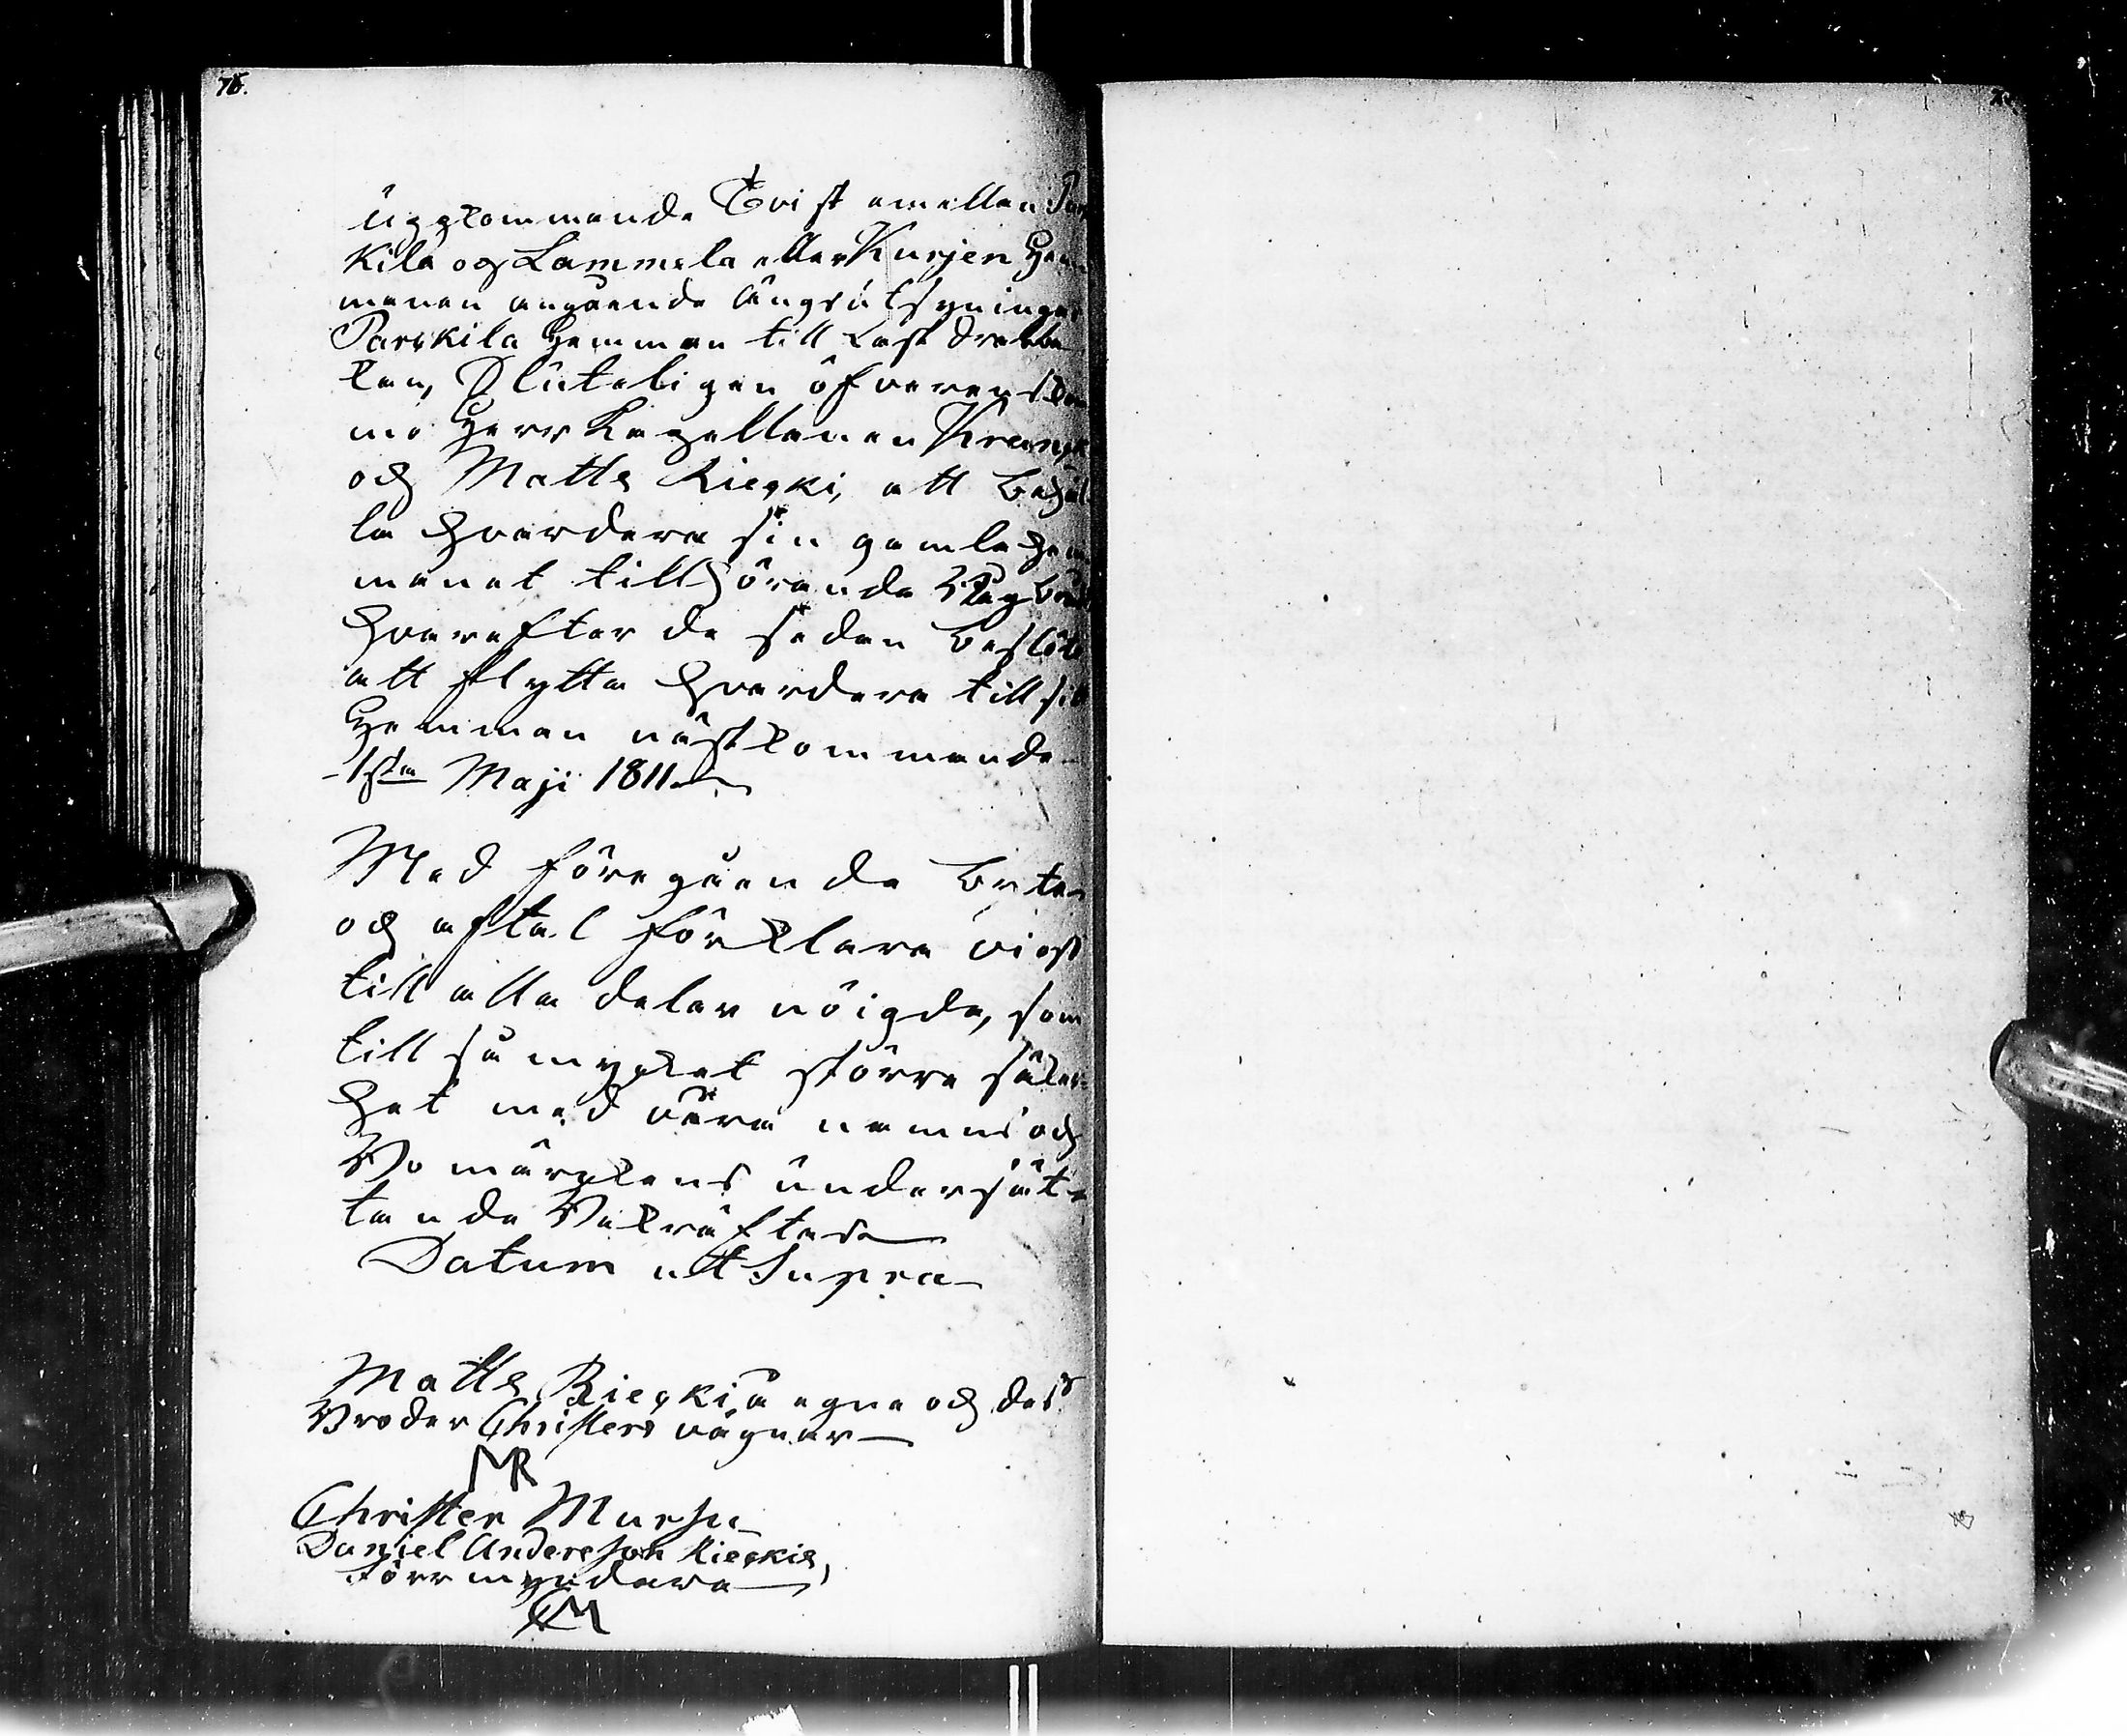 76.
uppkommande Tvist emellan Par
kila och Lammela eller Kurjen Hem
manen angående ängsutsyningar
Parskila Hemman till Last drabba
kan, Sluteligen öfverenskom
mo Herr Kapellanen Kranck
och Matts Rieski, att behål
la hvardera sin gamla Hem
manet tillhörande Åbygnad
hvarefter de sedan beslöto
att flytta hvardera till sitt
Hemman nästkommande
1sta Maji 1811.
Med föregående byte
och aftal förklara vi oss
till alla delar nöigde, som
till så mycket större säker
het med våra namns och
Bomärkens undersät
tande Bekräftas
Datum utt Supra
Matts Rieski å egna och dess
Broder Christers vägnar
MR
Christer Mursu
Daniel Andersson Rieskis,
förrmyndare
CM